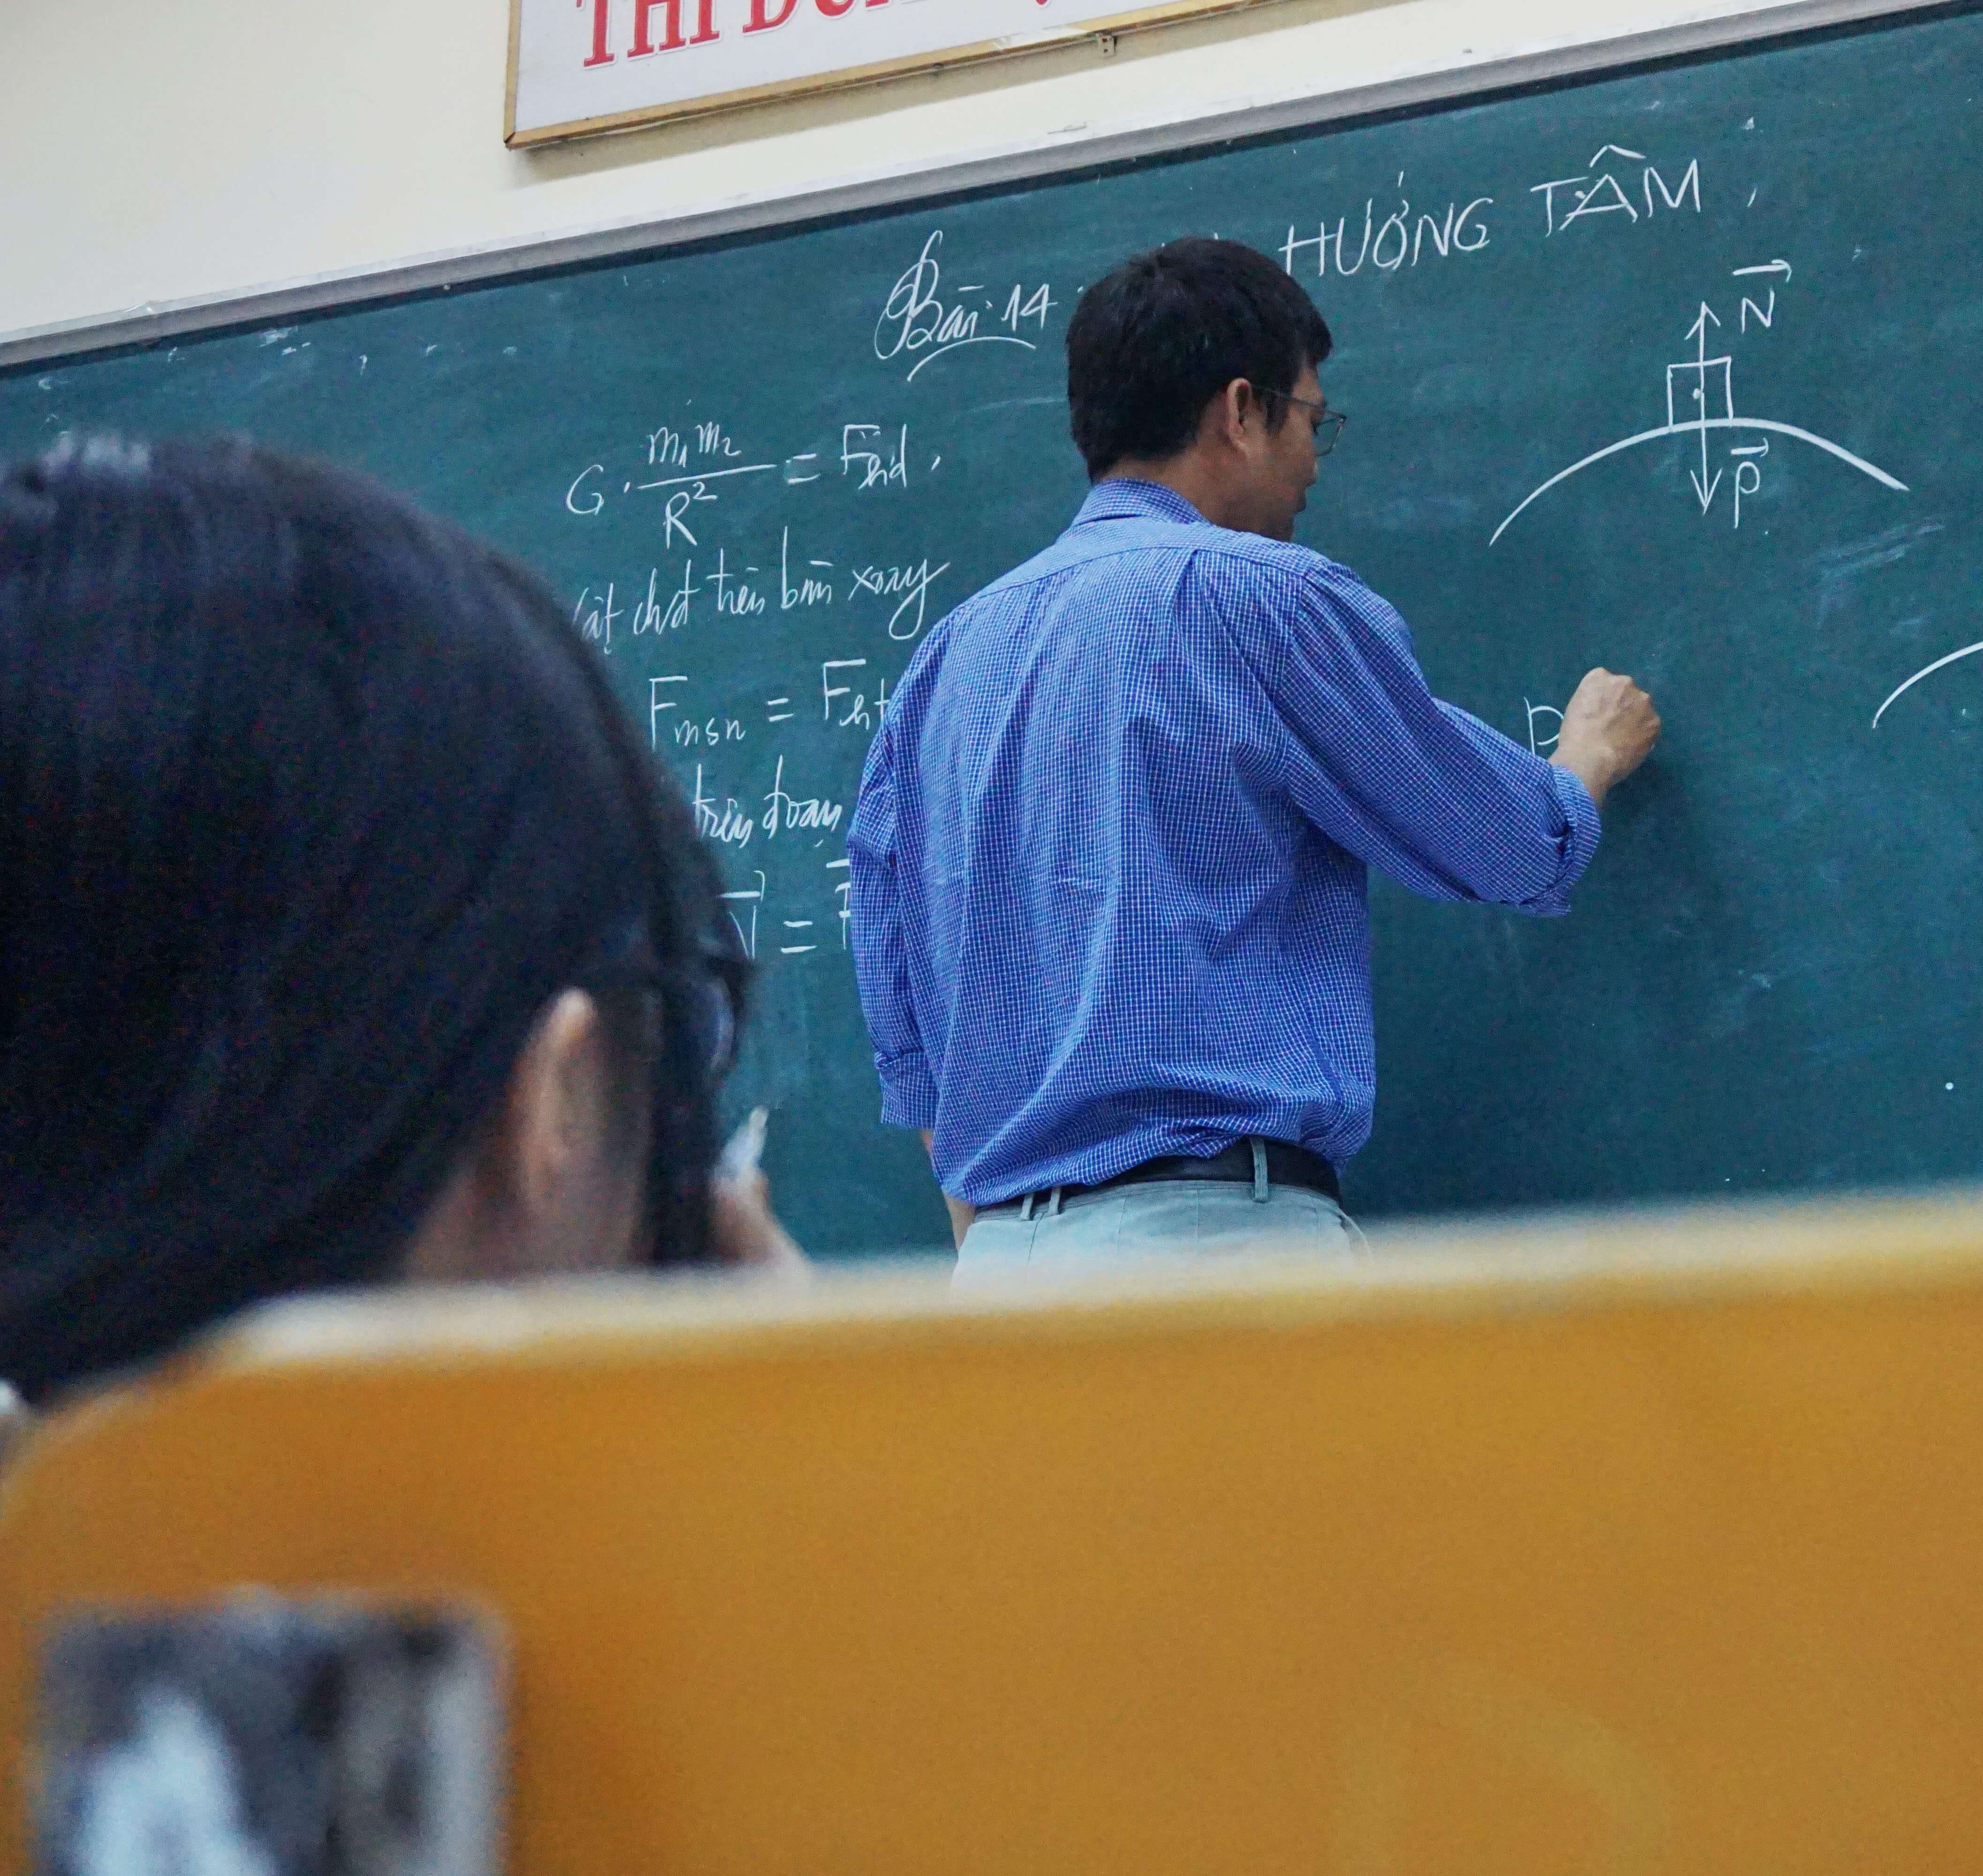 THI
Bài 14 : HƯỚNG TÂM
N
P
G . m₁m₂ / R² = Fhd
trên bàn xoay
Fmsn = Fht
trên đoạn
N =
P